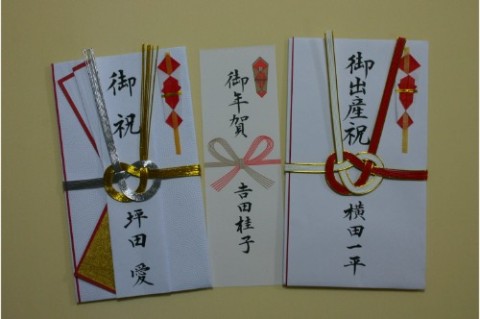 御祝
坪田 愛
御年賀
吉田桂子
御出産祝
横田一平